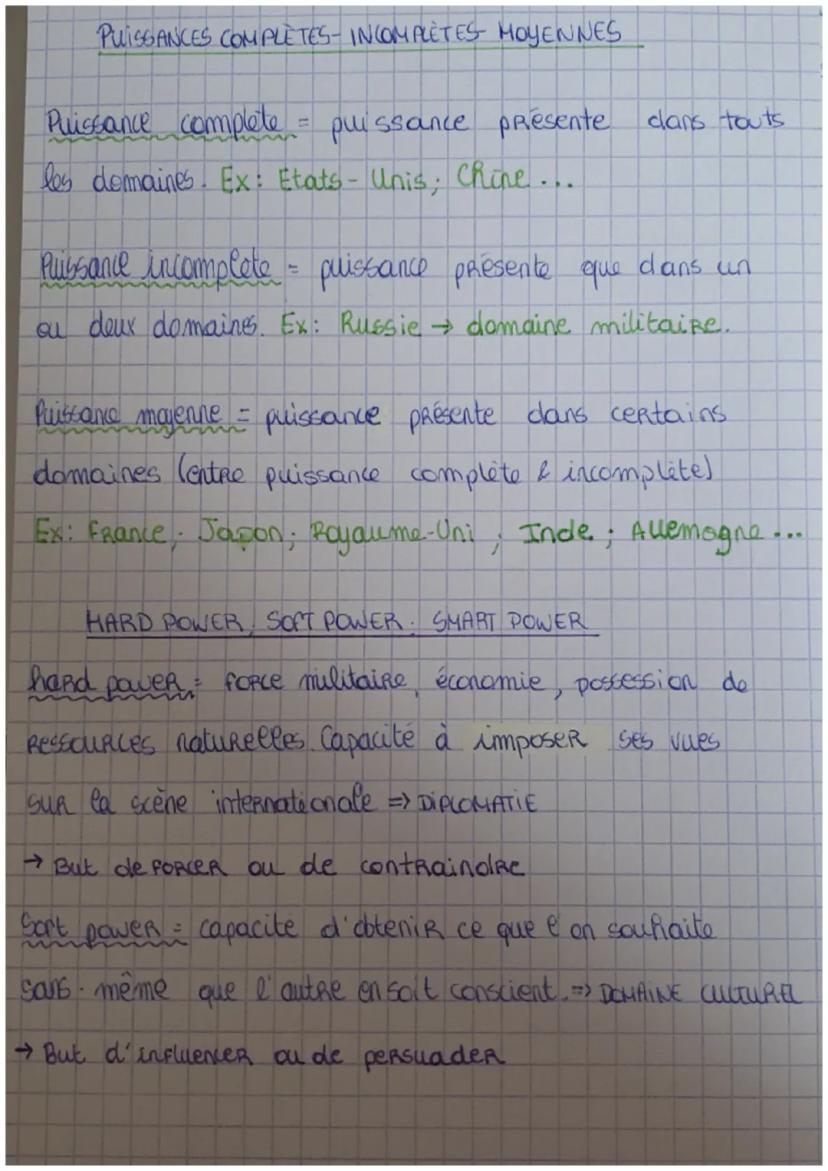 PUISSANCES COMPLÈTES- INCOMPLÈTES- MOYENNES
Puissance complète = puissance présente dans touts
les domaines. Ex: Etats-Unis; Chine...
Puissance incomplète = puissance présente que dans un
ou deux domaines. Ex: Russie → domaine militaire.
Puissance moyenne = puissance présente dans certains
domaines (entre puissance complète & incomplète)
Ex: France; Japon; Royaume-Uni; Inde; Allemagne...
HARD POWER, SOFT POWER. SMART POWER
hard power = force militaire, économie, possession de
ressources naturelles. Capacité à imposer ses vues
sur la scène internationale => DIPLOMATIE
→ But de forcer ou de contraindre
Soft power = capacité d'obtenir ce que l'on souhaite
sans même que l'autre en soit conscient. => DOMAINE CULTUREL
→ But d'influencer ou de persuader